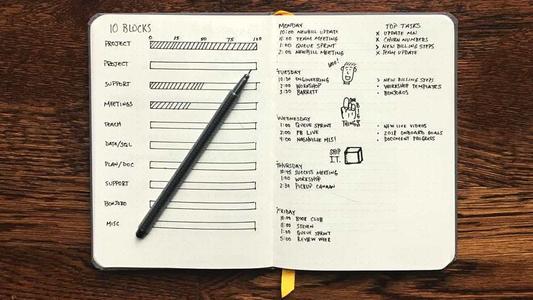 10 BLOCKS
0 25 50 75 100
PROJECT
PROJECT
SUPPORT
MEETINGS
TEACH
DATA/SQL
PLAN/DOC
SUPPORT
BONZERO
MISC
MONDAY
10:00 NEWBILL UPDATE
TEAM MEETING
1:00 QUEUE SPRINT
NEWBILL MEETING
TUESDAY
10:30 ENGINEERING
2:00 WORKSHOP
3:30 BARRETT
WEDNESDAY
1:00 QUEUE SPRINT
2:00 FB LIVE
4:00 NASHVILLE MLS!
THURSDAY
10:45 SUCCESS MEETING
1:00 WORKSHOP
2:30 PICKUP CANAAN
FRIDAY
BOOK CLUB
STEVEN
1:00 QUEUE SPRINT
5:00 REVIEW WEEK
TOP TASKS
x UPDATE
x CHURN NUMBERS
> NEW BILLING STEPS
x TEAM UPDATE
> NEW BILLING STEPS
• WORKSHOP TEMPLATES
• BONJOROS
• NEW LIVE VIDEOS
• 2018 ONBOARD GOALS
• DOCUMENT PROGRESS
THINGS
SHIP
I.T.